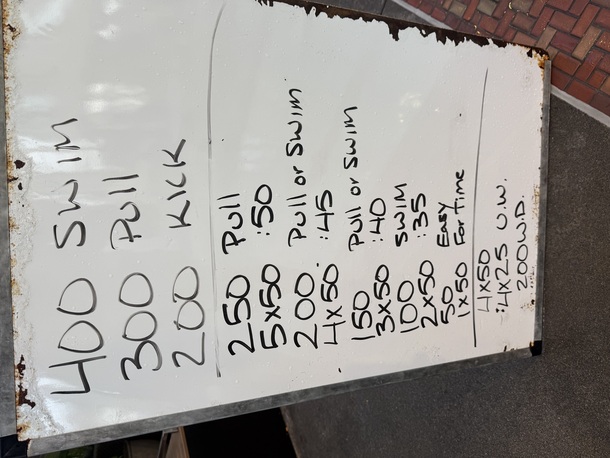 400 SWIM
300 Pull
200 KICK
250 Pull
5x50 :50
200 Pull or SWIM
4x50 :45
150 Pull or SWIM
3x50 :40
100 SWIM
2x50 :35
50 EASY
1x50 For Time
4x50
:4x25 U.W.
200WD.